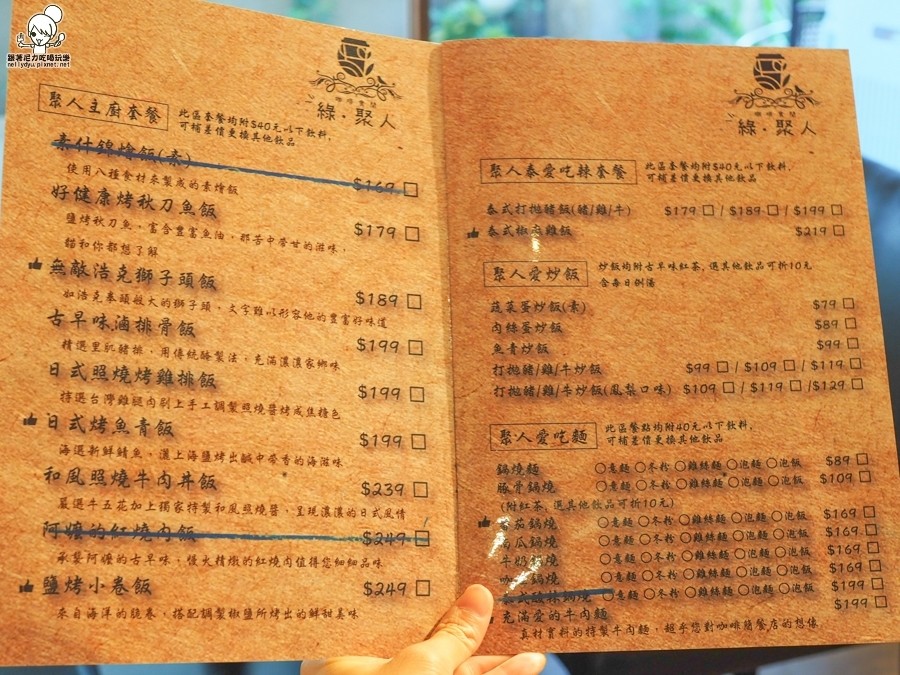 跟著尼力吃喝玩樂
nellydyu.pixnet.net
綠·聚人
聚人主廚套餐
此區套餐均附$40元以下飲料,
可補差價更換其他飲品
素什錦燴飯(素) $169
使用八種食材來製成的素燴飯
好健康烤秋刀魚飯 $179
鹽烤秋刀魚,富含豐富魚油,那苦中帶甘的滋味,
貓和你都想了解
無敵浩克獅子頭飯 $189
如浩克拳頭般大的獅子頭,文字難以形容他的豐富好味道
古早味滷排骨飯 $199
精選里肌豬排,用傳統醃製法,充滿濃濃家鄉味
日式照燒烤雞排飯 $199
特選台灣雞腿肉刷上手工調製照燒醬烤成焦糖色
日式烤魚青飯 $199
海選新鮮鯖魚,灑上海鹽烤出鹹中帶香的海滋味
和風照燒牛肉丼飯 $239
嚴選牛五花加上獨家特製和風照燒醬,呈現濃濃的日式風情
阿嬤的紅燒肉飯 $249
承襲阿嬤的古早味,慢火精燉的紅燒肉值得您細細品味
鹽烤小卷飯 $249
來自海洋的脆卷,搭配調製椒鹽所烤出的鮮甜美味
綠·聚人
聚人泰愛吃辣套餐
此區套餐均附$40元以下飲料,
可補差價更換其他飲品
泰式打拋豬飯(豬/雞/牛) $179 / $189 / $199
泰式椒麻雞飯 $219
聚人愛炒飯
炒飯均附古早味紅茶,選其他飲品可折10元
含每日例湯
蔬菜蛋炒飯(素) $79
肉絲蛋炒飯 $89
魚青炒飯 $99
打拋豬/雞/牛炒飯 $99 / $109 / $119
打拋豬/雞/牛炒飯(鳳梨口味) $109 / $119 / $129
聚人愛吃麵
此區餐點均附40元以下飲料,
可補差價更換其他飲品
鍋燒麵 ○意麵 ○冬粉 ○雞絲麵 ○泡麵 ○泡飯 $89
豚骨鍋燒 ○意麵 ○冬粉 ○雞絲麵 ○泡麵 ○泡飯 $109
(附紅茶,選其他飲品可折10元)
番茄鍋燒 ○意麵 ○冬粉 ○雞絲麵 ○泡麵 ○泡飯 $169
南瓜鍋燒 ○意麵 ○冬粉 ○雞絲麵 ○泡麵 ○泡飯 $169
牛奶鍋燒 ○意麵 ○冬粉 ○雞絲麵 ○泡麵 ○泡飯 $169
咖 鍋燒 ○意麵 ○冬粉 ○雞絲麵 ○泡麵 ○泡飯 $169
鍋燒 ○意麵 ○冬粉 ○雞絲麵 ○泡麵 ○泡飯 $199
充滿愛的牛肉麵 $199
真材實料的特製牛肉麵,超乎您對咖啡簡餐店的想像